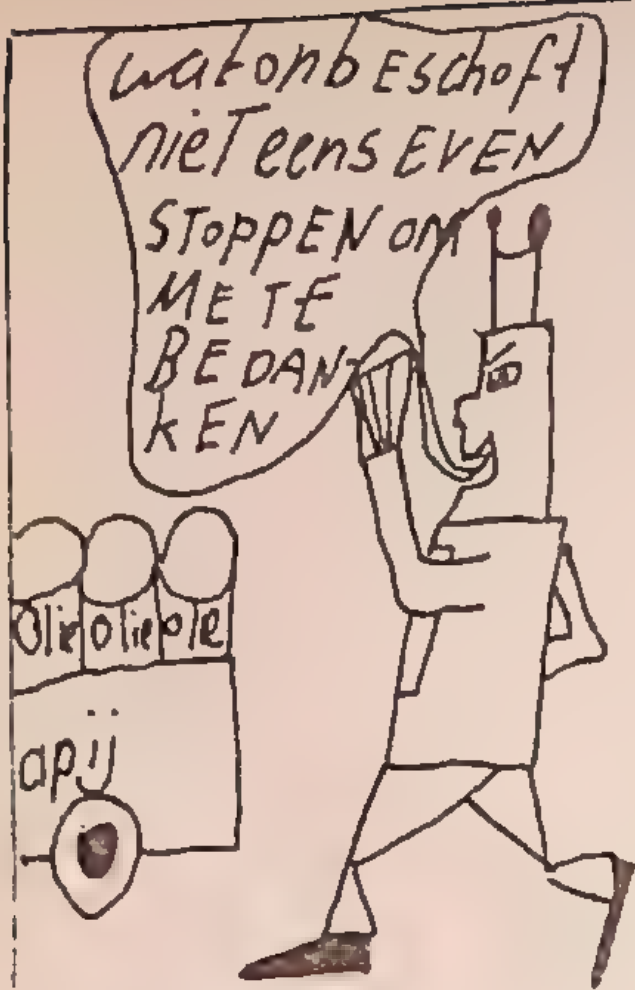 wat onbEschoft
nieT eens EVEN
SToppEN OM
ME TE
BEDAN-
KEN
Olie olie ole
apij